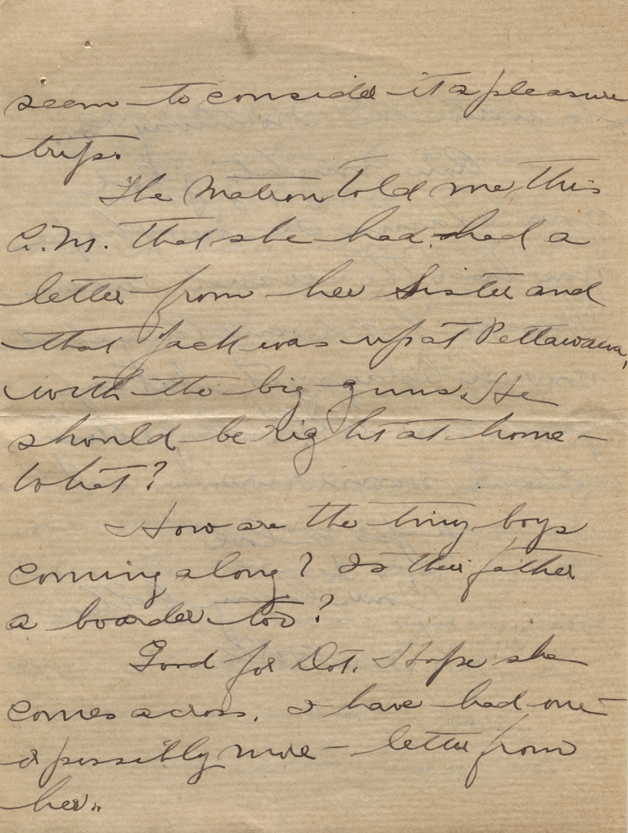 seem to consider it a pleasure
trip.
The Matron told me this
A.M. that she had had a
letter from her sister and
that Jack was up at Pettawawa,
with the big guns. He
should be right at home -
What?
How are the tiny boys
coming along? Is their father
a boarder too?
Good for Dot. Hope she
comes across. I have had one -
or possibly more - letter from
her.